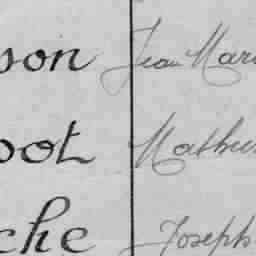 son Jean Mari
pot Mathur
che Joseph